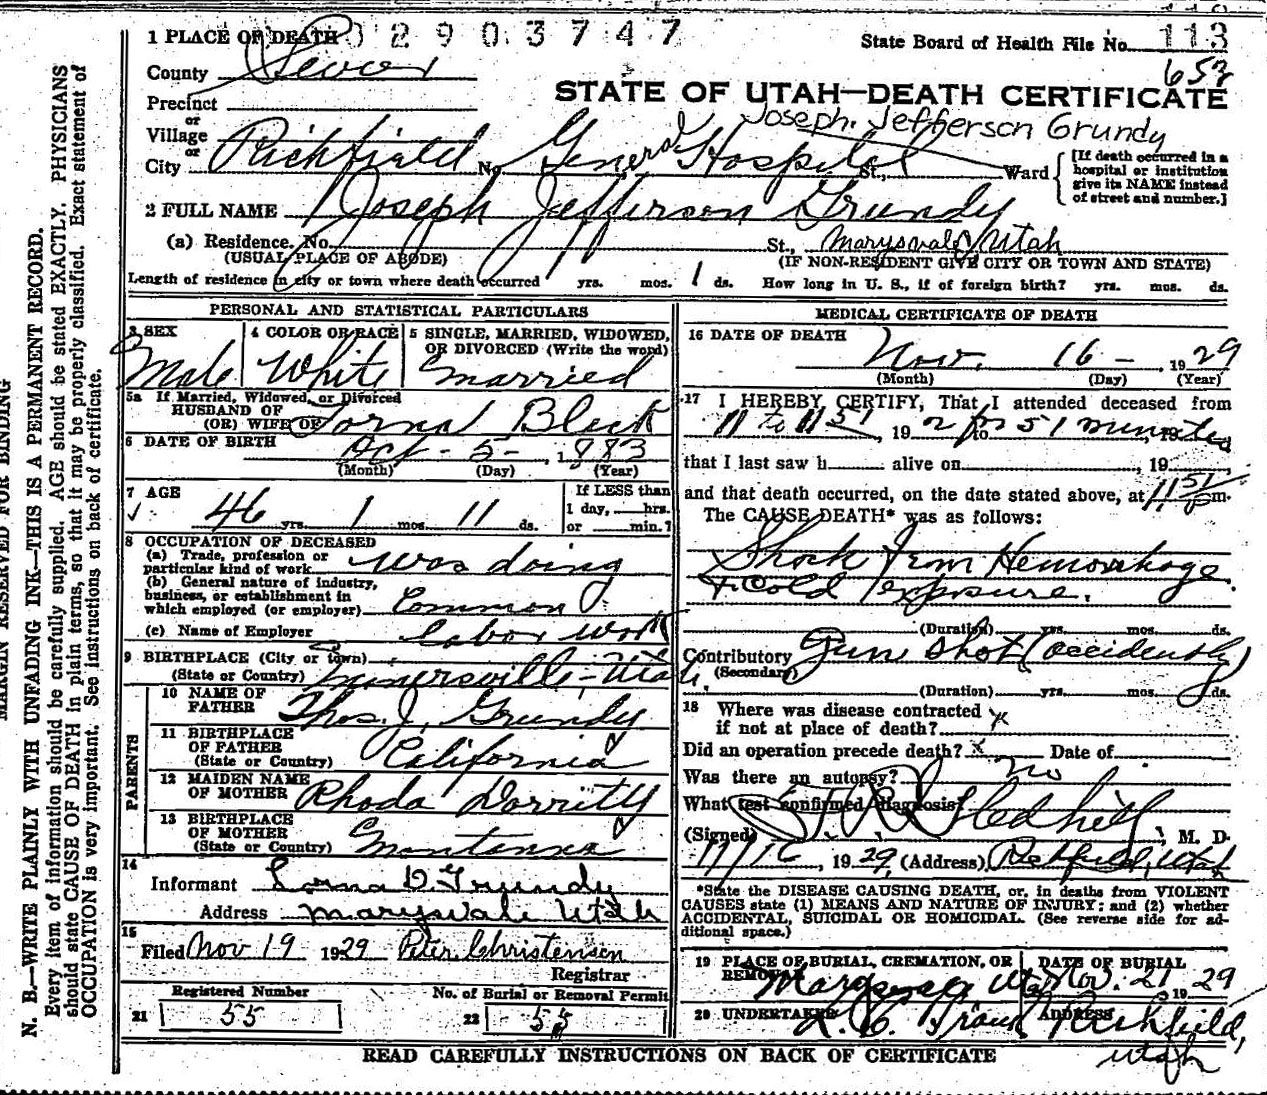 MARGIN RESERVED FOR BINDING
N. B.—WRITE PLAINLY WITH UNFADING INK—THIS IS A PERMANENT RECORD.
Every item of information should be carefully supplied. AGE should be stated EXACTLY. PHYSICIANS
should state CAUSE OF DEATH in plain terms, so that it may be properly classified. Exact statement of
OCCUPATION is very important. See instructions on back of certificate.
1 PLACE OF DEATH 02903747
State Board of Health File No. 113
County Sevier
652
Precinct
STATE OF UTAH—DEATH CERTIFICATE
or
Joseph. Jefferson Grundy
Village
or
City Richfield No. General Hospital St., Ward
[If death occurred in a
hospital or institution
give its NAME instead
of street and number.]
2 FULL NAME Joseph Jefferson Grundy
(a) Residence. No. St., Marysvale, Utah
(USUAL PLACE OF ABODE) (IF NON-RESIDENT GIVE CITY OR TOWN AND STATE)
Length of residence in city or town where death occurred yrs. mos. 1 ds. How long in U. S., if of foreign birth? yrs. mos. ds.
PERSONAL AND STATISTICAL PARTICULARS
3 SEX 4 COLOR OR RACE 5 SINGLE, MARRIED, WIDOWED,
OR DIVORCED (Write the word)
Male White Married
5a If Married, Widowed, or Divorced
HUSBAND OF
(OR) WIFE OF Lorna
6 DATE OF BIRTH Oct - 5 - , 1883
(Month) (Day) (Year)
7 AGE
46 yrs. 1 mos. 11 ds.
If LESS than
1 day, hrs.
or min.?
8 OCCUPATION OF DECEASED
(a) Trade, profession or
particular kind of work was doing
(b) General nature of industry,
business, or establishment in
which employed (or employer) Common
(c) Name of Employer Labor work
9 BIRTHPLACE (City or town)
(State or Country) - Utah
PARENTS
10 NAME OF
FATHER Thos. J. Grundy
11 BIRTHPLACE
OF FATHER
(State or Country) California
12 MAIDEN NAME
OF MOTHER Rhoda Dorrity
13 BIRTHPLACE
OF MOTHER
(State or Country) Montana
14
Informant Lorna D. Grundy
Address Marysvale Utah
15
Filed Nov 19 1929 Peter Christensen
Registrar
Registered Number No. of Burial or Removal Permit
21 55 22 55
MEDICAL CERTIFICATE OF DEATH
16 DATE OF DEATH
Nov. 16 - , 1929
(Month) (Day) (Year)
17 I HEREBY CERTIFY, That I attended deceased from
11 to 11 51, 19 2 to 51 minutes, 19
that I last saw h alive on , 19
and that death occurred, on the date stated above, at 11 51 m.
The CAUSE DEATH* was as follows:
Shock from Hemorrhage
+ Cold exposure.
(Duration) yrs. mos. ds.
Contributory Gun shot (accidently)
(Secondary)
(Duration) yrs. mos. ds.
18 Where was disease contracted
if not at place of death? x
Did an operation precede death? x Date of
Was there an autopsy? no
What test confirmed diagnosis?
(Signed) , M. D.
11/16, 1929, (Address) Richfield, Utah
*State the DISEASE CAUSING DEATH, or, in deaths from VIOLENT
CAUSES state (1) MEANS AND NATURE OF INJURY; and (2) whether
ACCIDENTAL, SUICIDAL OR HOMICIDAL. (See reverse side for ad-
ditional space.)
19 PLACE OF BURIAL, CREMATION, OR
REMOVAL Marysvale Uta
DATE OF BURIAL
Nov. 21 1929
20 UNDERTAKER ADDRESS Richfield,
Utah
READ CAREFULLY INSTRUCTIONS ON BACK OF CERTIFICATE